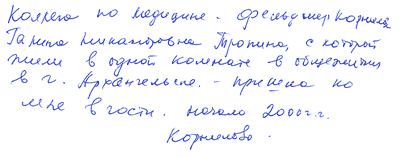 Коллега по медицине. Фельдшер Корнилово
Галина Никаноровна Тропина, с которой
жили в одной комнате в общежитии
в г. Архангельске. - пришла ко
мне в гости. начало 2000г.г.
Корнилово.